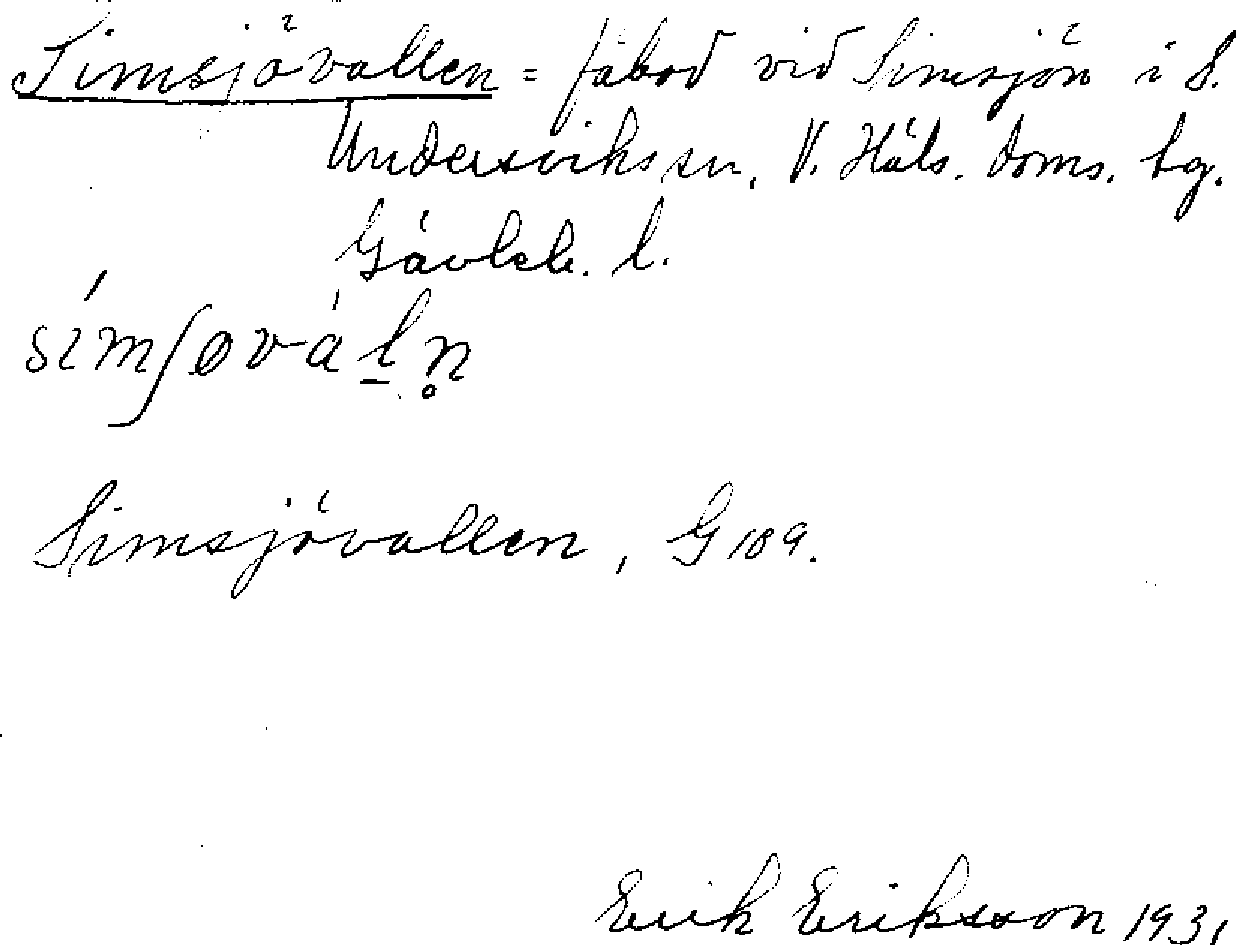 Simsjövallen = fäbod vid Simsjön i S.
Underviks sn, V. Häls. doms. bg.
Gävleb. l.
símʃøvàḻn̥
Simsjövallen, G 109.
Erik Eriksson 1931